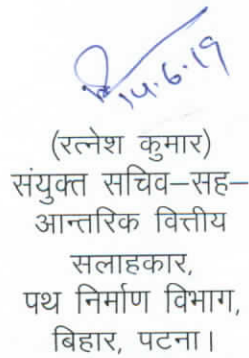 14.6.19
(रत्नेश कुमार)
संयुक्त सचिव–सह–
आन्तरिक वित्तीय
सलाहकार,
पथ निर्माण विभाग,
बिहार, पटना।